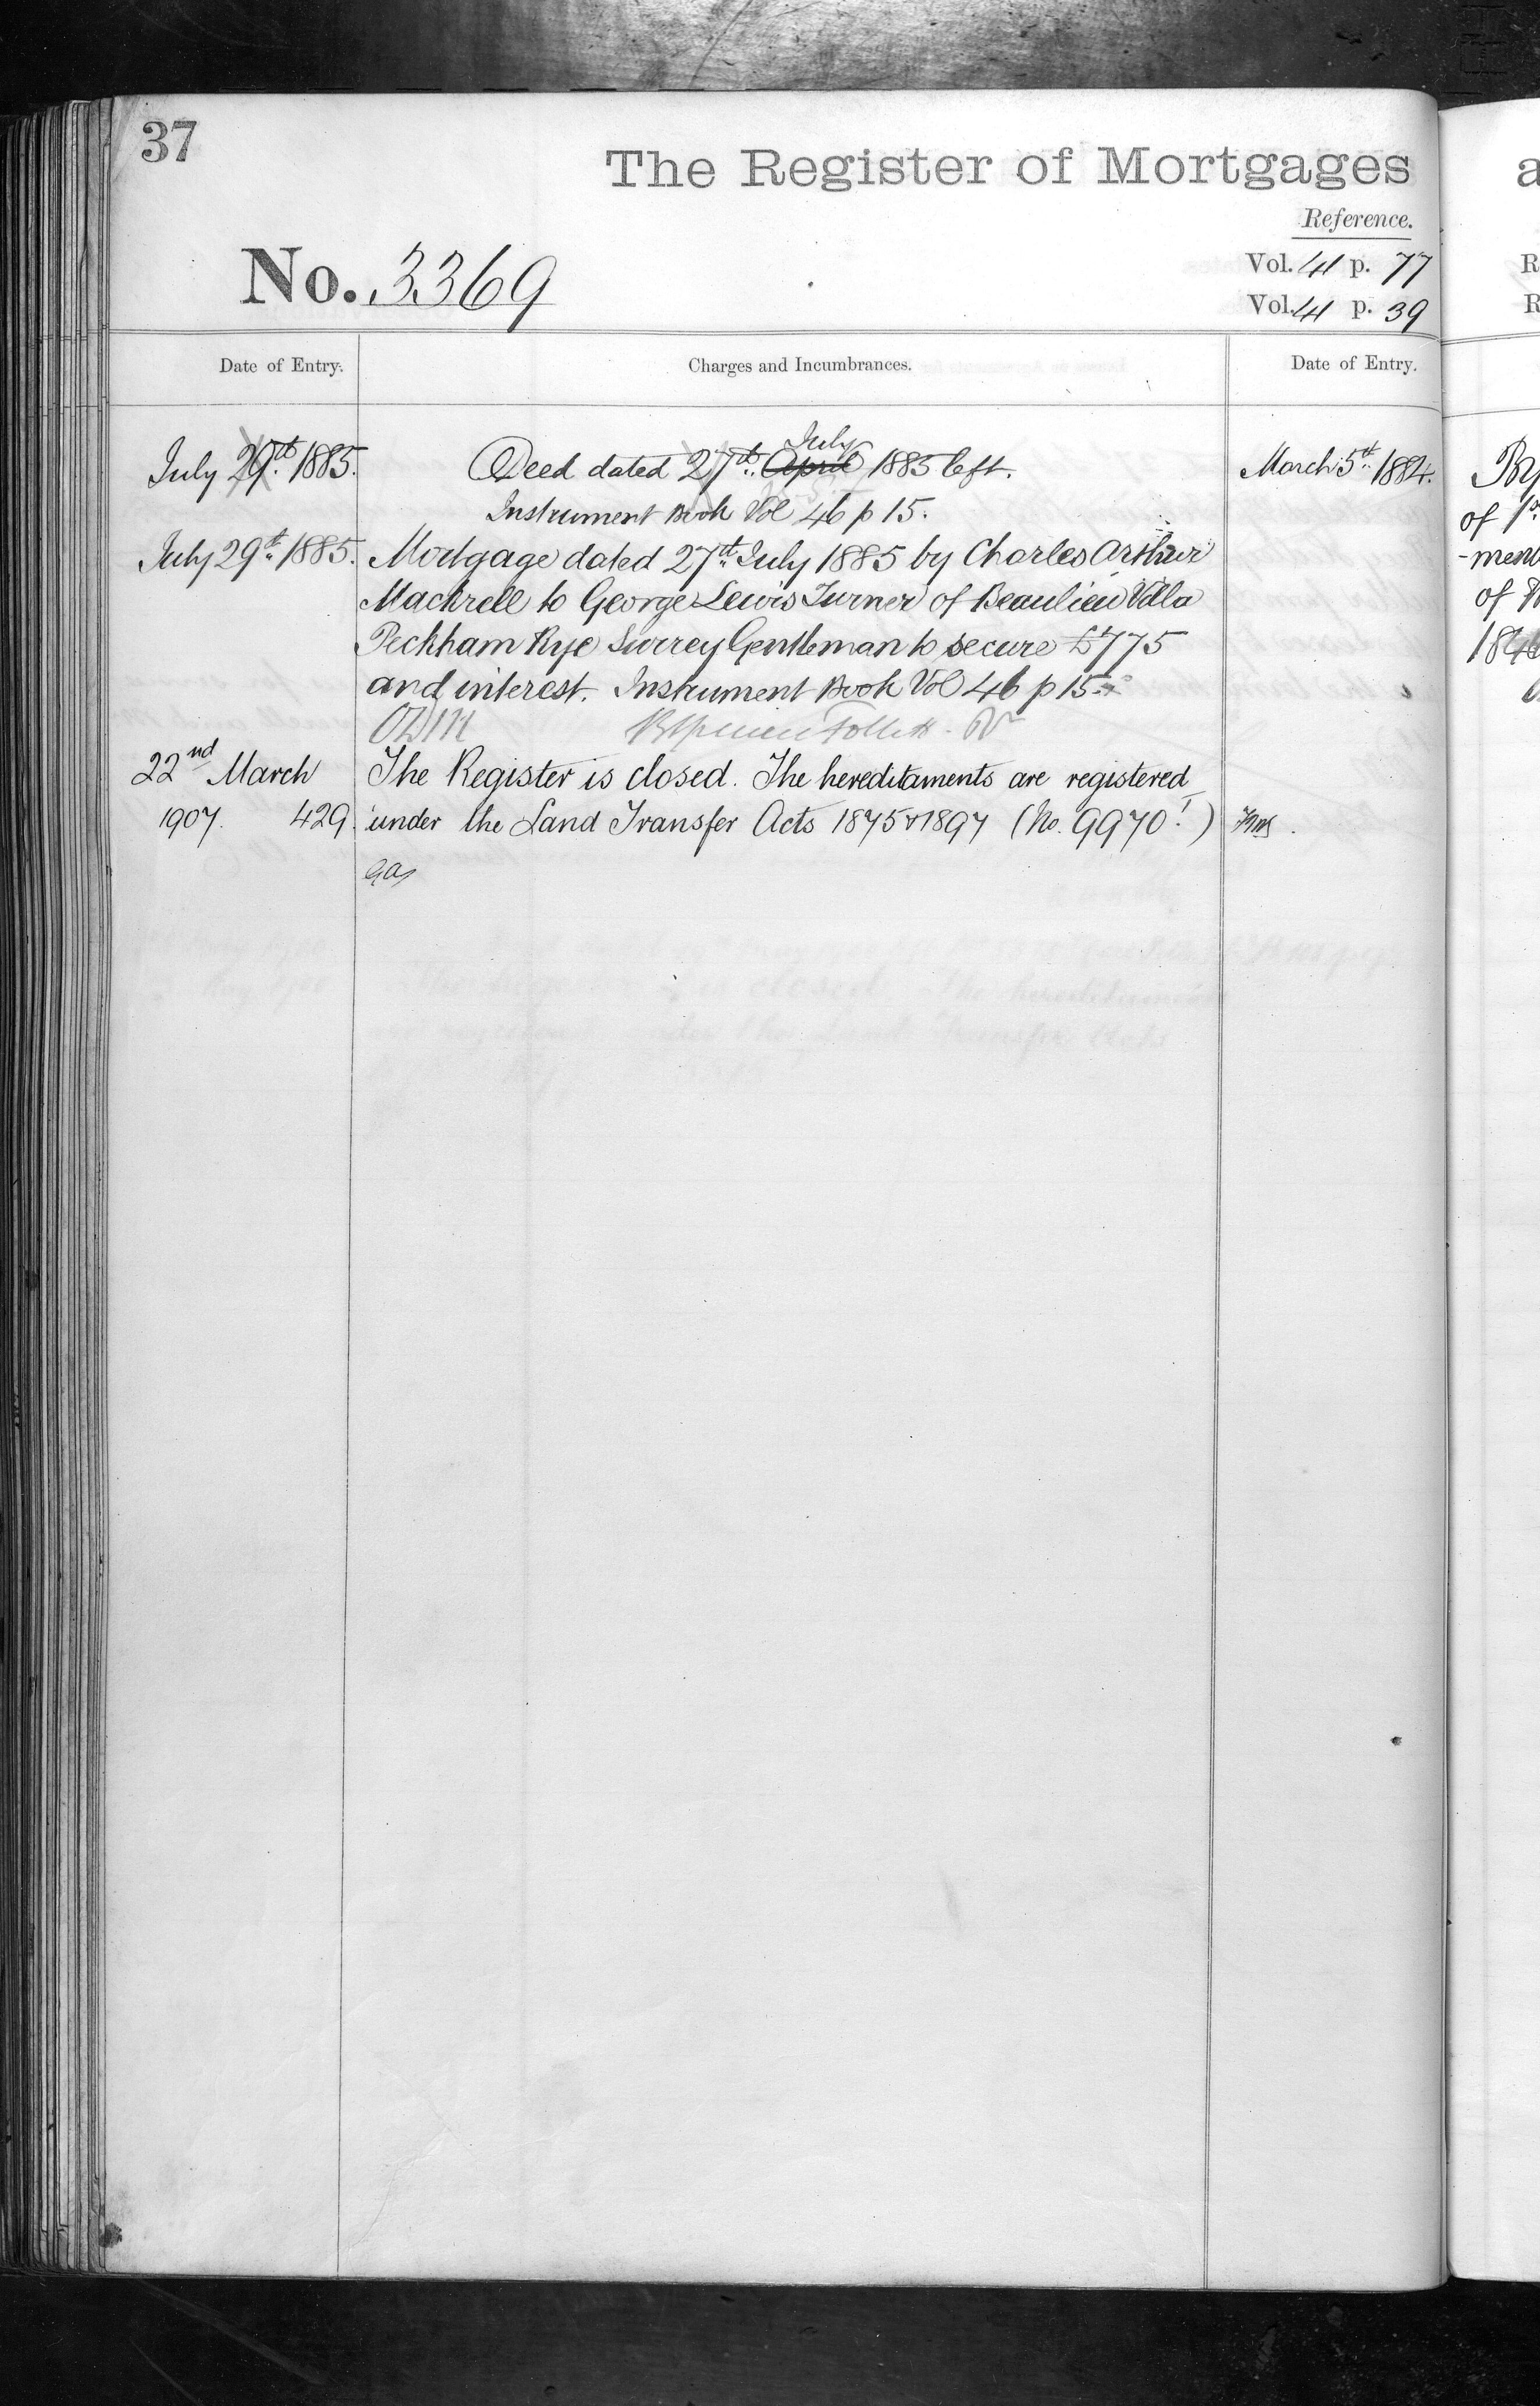 37
The Register of Mortgages
Reference.
No. 3369
Vol. 41 p. 77
Vol. 41 p. 39
Date of Entry. Charges and Incumbrances. Date of Entry.
July
July 29th 1885. Deed dated 27th April 1885 left. March 5th 1884.
Instrument Book Vol 46 p 15.
July 29th 1885. Mortgage dated 27th July 1885 by Charles Arthur
Mackrell to George Lewis Turner of Beaulieu Villa
Peckham Rye Surrey Gentleman to secure £775
and interest. Instrument Book Vol 46 p 15.
22nd March The Register is closed. The hereditaments are registered
1907. 429. under the Land Transfer Acts 1875 & 1897 (No. 99701.)
a
R
R
of 1st
-ment
of